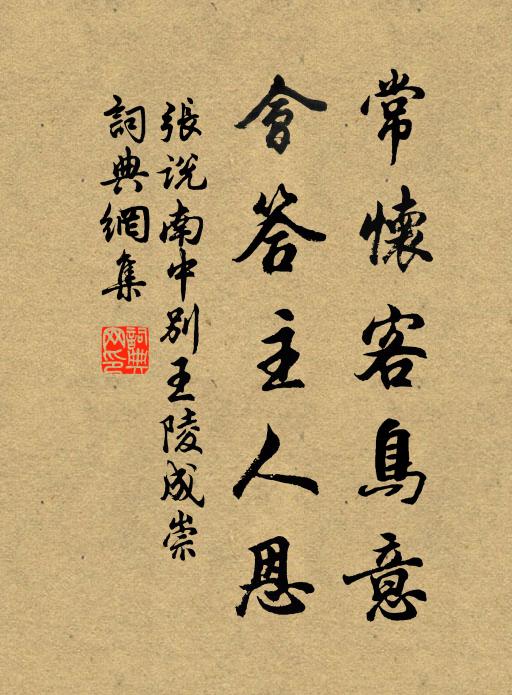 常懷客鳥意
會答主人恩
張说南中別王陵成崇
詞典網集
詞典网印